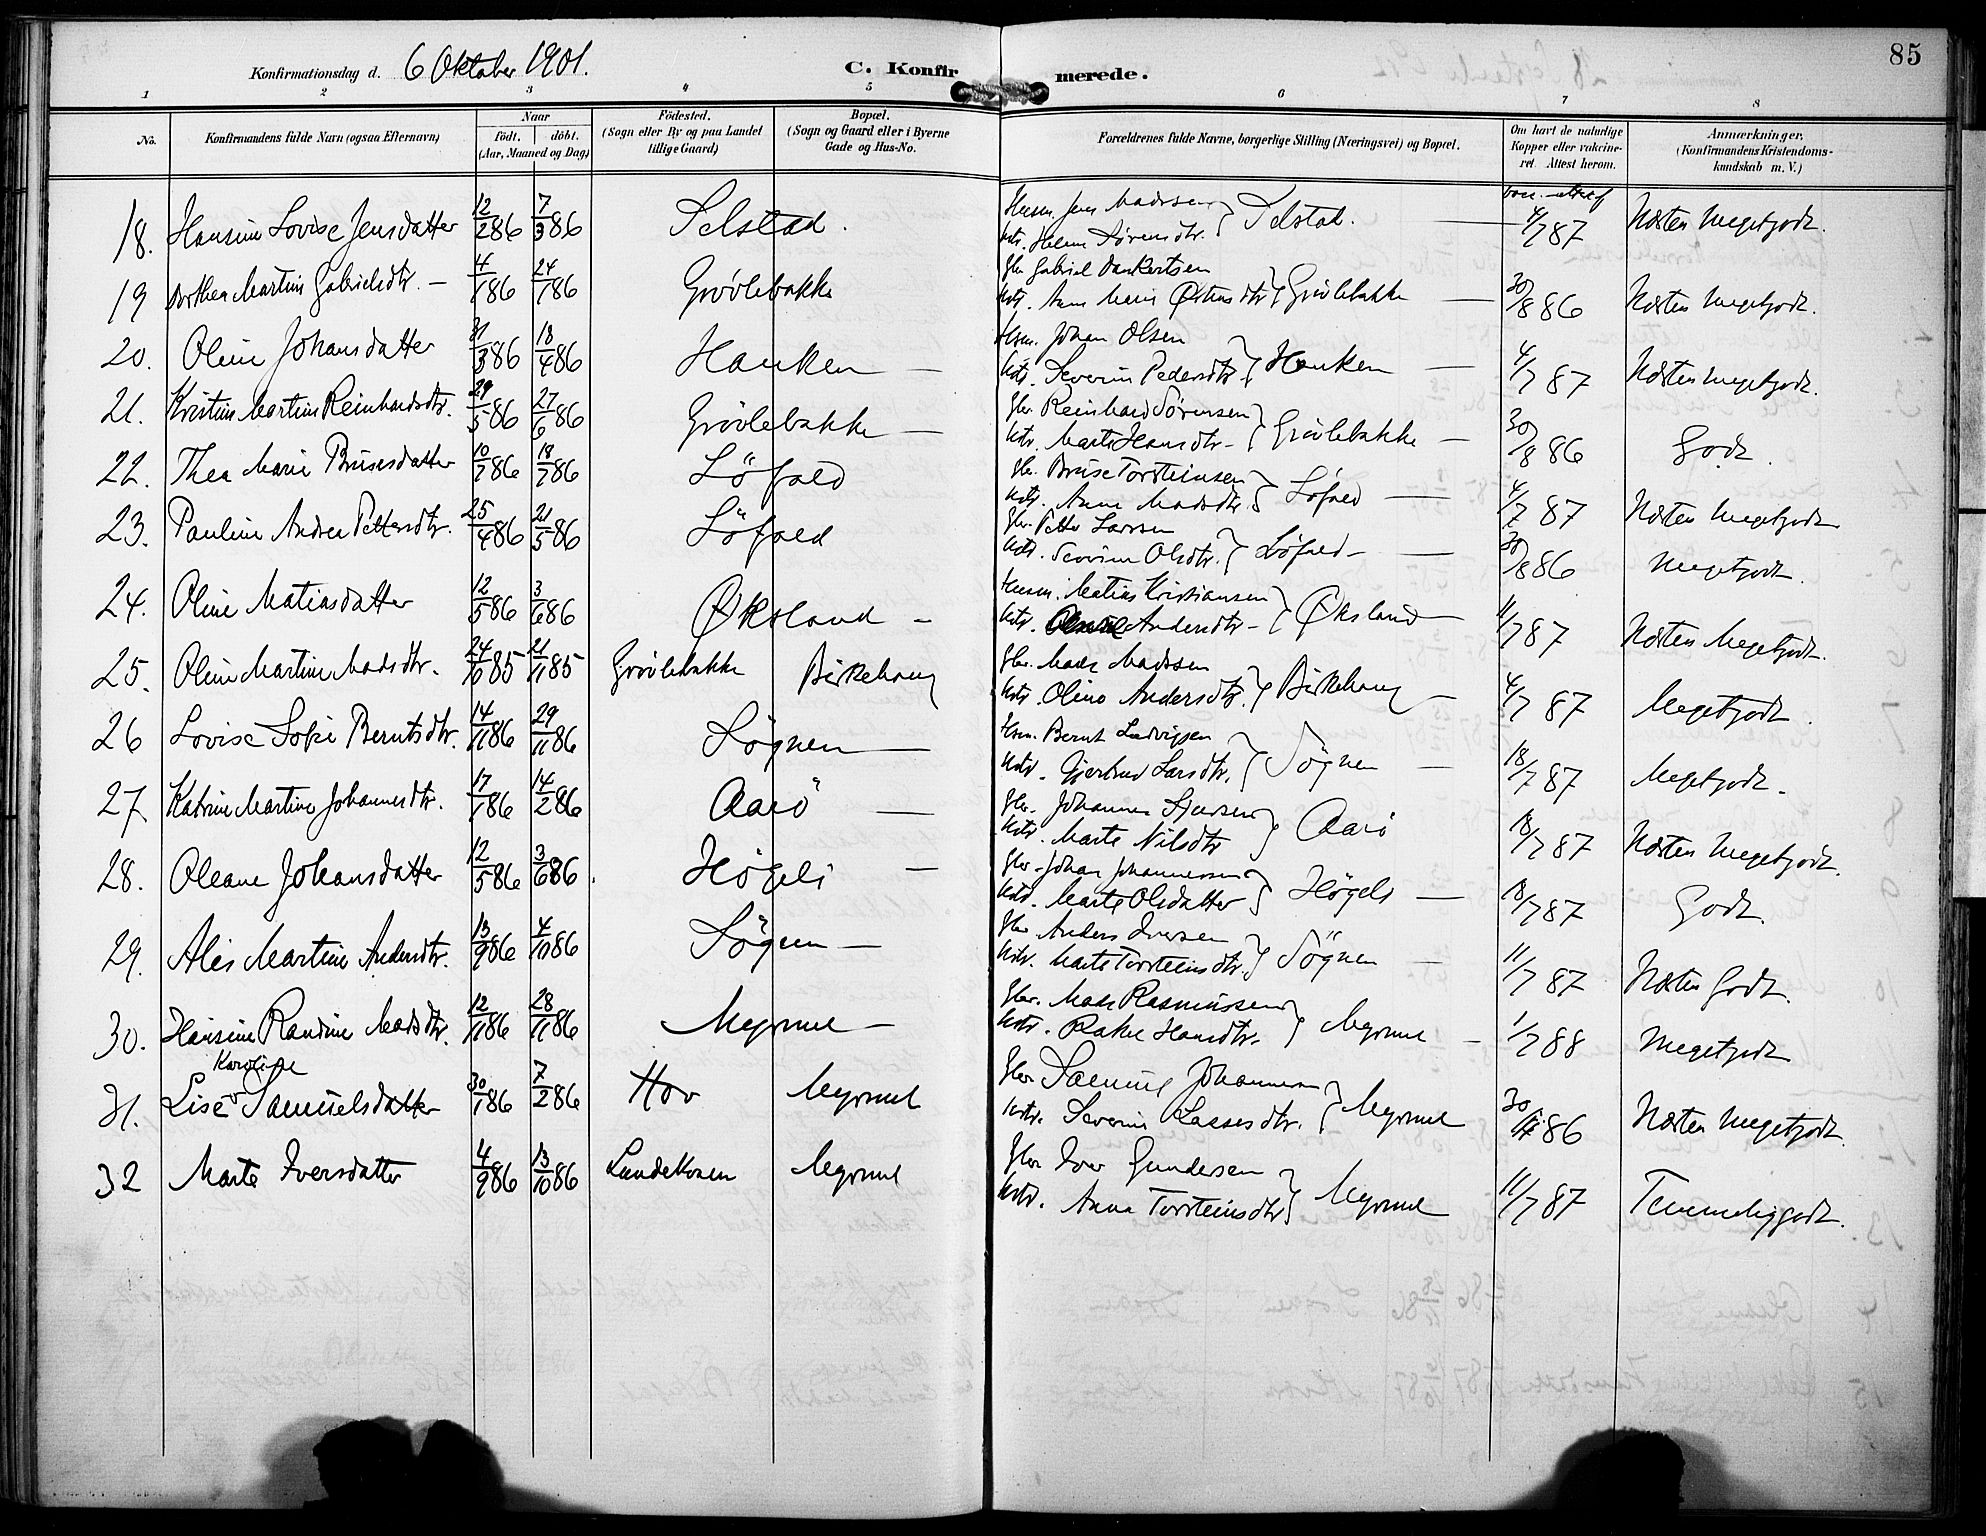 85
Konfirmationsdag d. 6 Oktober 1901.
C. Konfirmerede.
1 2 3 4 5 6 7 8
No. Konfirmandens fulde Navn (ogsaa Efternavn) Naar født. døbt. (Aar, Maaned og Dag) Fødested. (Sogn eller By og paa Landet tillige Gaard) Bopæl. (Sogn og Gaard eller i Byerne Gade og Hus-No. Forældrenes fulde Navne, borgerlige Stilling (Næringsvei) og Bopæl. Om havt de naturlige Kopper eller vakcineret. Attest herom. Anmærkninger. (Konfirmandens Kristendomskundskab m. V.)
18. Hansine Lovise Jensdatter 12/2 86 7/3 86 Selstad. Husm. Jens Madssen Kst. Helene Sørensdtr. } Selstad. vacc. attest 4/7 87 Næsten Megetgodt.
19 Dorthea Martine Gabrielsdtr. – 4/1 86 24/1 86 Grøvlebakke Gbr Gabriel Dankertsen Kst. Anne Marie Østensdtr } Grøvlebakke – 30/8 86 Næsten Megetgodt.
20. Oline Johansdatter 31/3 86 18/4 86 Hauken – Husm. Johan Olsen Kst. Severine Pedersdtr. } Hauken – 4/7 87 Næsten Megetgodt.
21. Kristine Martine Reinhardsdtr. 29/5 86 27/6 86 Grøvlebakke – Gbr. Reinhard Sørensen Kst. Marte Hansdtr – } Grøvlebakke – 30/8 86 Godt.
22. Thea Marie Brusesdatter 10/7 86 18/7 86 Løfald Gbr. Bruse Torsteinsen Kst. Anne Madsdtr. } Løfald – 4/7 87 Næsten Megetgodt
23. Pauline Andrea Pettersdtr. 25/4 86 21/5 86 Løfald Gbr. Petter Larsen Kst. Severine Olsdtr. } Løfald – 30/8 86 Megetgodt.
24. Oline Matiasdatter 12/5 86 3/6 86 Øksland – Husm. Matias Kristiansen Kst. Andersdtr – } Øksland – 11/7 87 Næsten Megetgodt.
25. Oline Martine Madsdtr. 24/10 85 21/11 85 Grøvlebakke Birkehaug Gbr. Mads Madssen Kst. Oline Andersdtr. } Birkehaug – 4/7 87 Megetgodt.
26 Lovise Sofie Berntsdtr. 14/11 86 29/11 86 Søgnen – Husm. Bernt Ludvigsen Kst. Gjertrud Larsdtr. } Søgnen – 18/7 87 Megetgodt.
27. Katrine Martine Johannesdtr. 17/1 86 14/2 86 Aarø – Gbr. Johannes Kst. Marte Nilsdtr } Aarø 18/7 87 Næsten Megetgodt.
28. Oleane Johansdatter 12/5 86 3/6 86. Høgeli – Gbr. Johan Johannessen Kst. Marte Olsdatter } Høgeli – 18/7 87 Godt.
29. Alis Martine Andersdtr. 13/9 86 4/10 86 Søgnen – Gbr Anders Iversen Kst. Marte Torsteinsdtr. } Søgnen – 11/7 87 Næsten Godt.
30. Hansine Randine Madsdtr. 12/11 86 28/11 86 Myrmel – Gbr. Mads Rasmussen Kst. Rakel Hansdtr. } Myrmel – 1/7 88 Megetgodt
31. Lise Karoline Samuelsdatter 30/1 86 7/2 86 Hov Myrmel Gbr Samuel Johannesen Kst. Severine Lassesdtr. } Myrmel 30/8 86 Næsten Megetgodt.
32 Marte Iversdatter 4/9 86 13/10 86 Lundekvam Myrmel Gbr Iver Gundersen Kst. Anna Torsteinsdtr } Myrmel 11/7 87 Temmeliggodt.